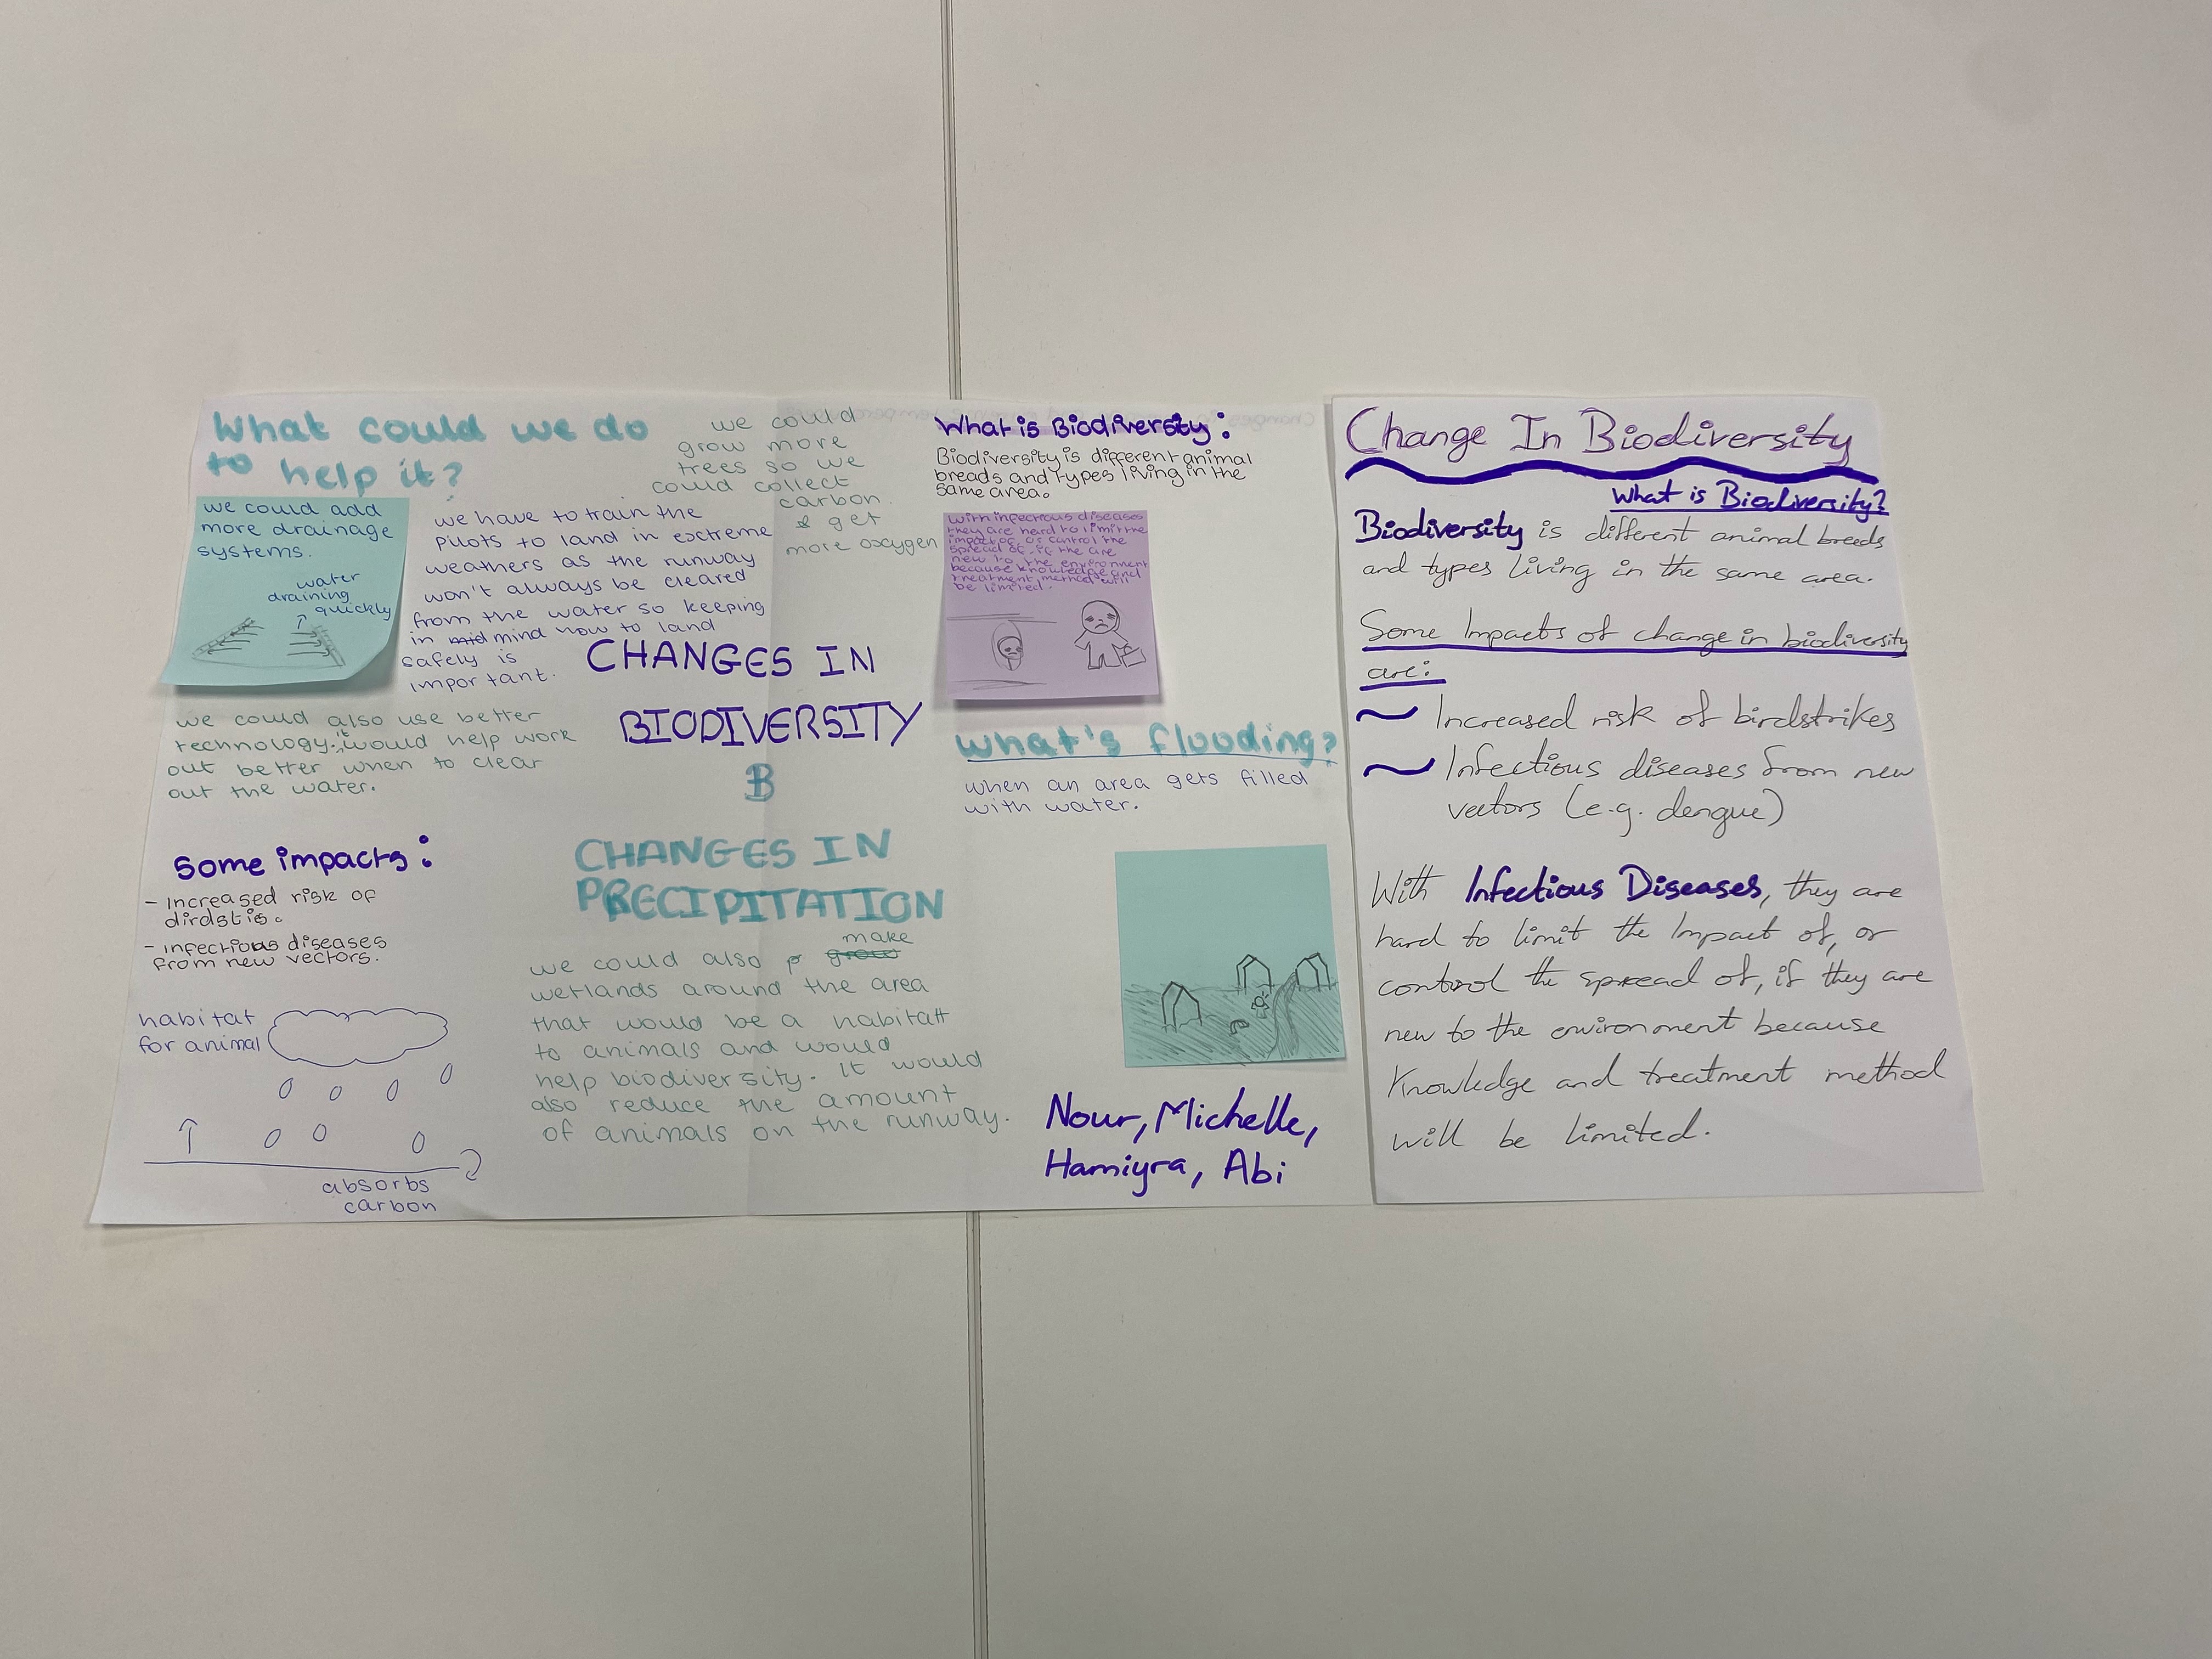 What could we do
to help it?
we could
grow more
trees so we
could collect
carbon.
& get
more oxygen
we could add
more drainage
systems.
water
draining
quickly
we have to train the
pilots to land in extreme
weathers as the runway
won't always be cleared
from the water so keeping
in mid mind how to land
safely is
important.
we could also use better
technology. it would help work
out better when to clear
out the water.
CHANGES IN
BIODIVERSITY
&
CHANGES IN
PRECIPITATION
Some impacts:
- Increased risk of
dirdstis.
- infectious diseases
from new vectors.
habitat
for animal
absorbs
carbon
make
we could also p grow
wetlands around the area
that would be a habitatt
to animals and would
help biodiversity. It would
also reduce the amount
of animals on the runway.
What is Biodiversity:
Biodiversity is different animal
breads and types living in the
same area.
With infectious diseases
they are hard to limit the
impact of, or control the
spread of, if the are
new to the environment
because knowledge and
treatment method will
be limited.
What's flooding?
when an area gets filled
with water.
Nour, Michelle,
Hamiyra, Abi
Change In Biodiversity
What is Biodiversity?
Biodiversity is different animal breeds
and types living in the same area.
Some Impacts of change in biodiversity
are:
~ Increased risk of birdstrikes
~ Infectious diseases from new
vectors (e.g. dengue)
With Infectious Diseases, they are
hard to limit the Impact of, or
control the spread of, if they are
new to the environment because
Knowledge and treatment method
will be limited.